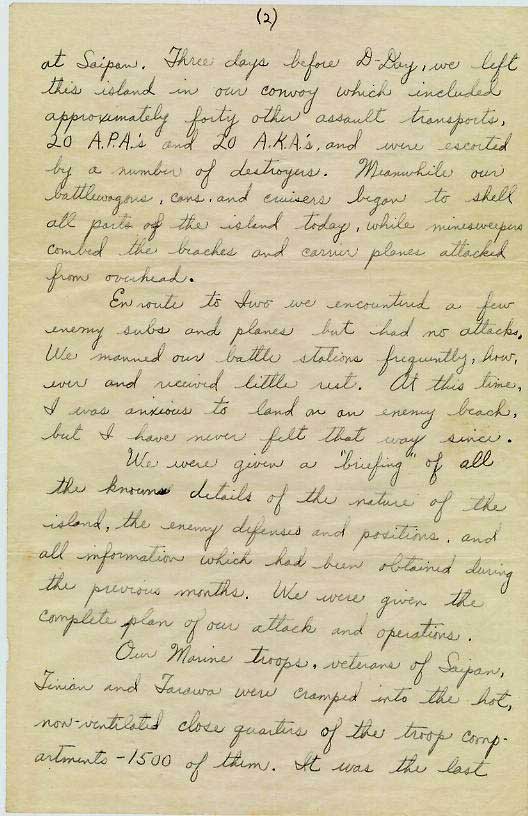 (2)
at Saipan. Three days before D-Day, we left
this island in our convoy which included
approximately forty other assault transports,
20 A.P.A.'s and 20 A.K.A.'s, and were escorted
by a number of destroyers. Meanwhile our
battlewagons, cans, and cruisers began to shell
all parts of the island today, while minesweepers
combed the beaches and carrier planes attacked
from overhead.
En route to Iwo we encountered a few
enemy subs and planes but had no attacks.
We manned our battle stations frequently, how-
ever and received little rest. At this time,
I was anxious to land on an enemy beach,
but I have never felt that way since.
We were given a "briefing" of all
the known details of the nature of the
island, the enemy defenses and positions, and
all information which had been obtained during
the previous months. We were given the
complete plan of our attack and operations.
Our Marine troops, veterans of Saipan,
Tinian and Tarawa were cramped into the hot,
non-ventilated close quarters of the troop comp-
artments - 1500 of them. It was the last